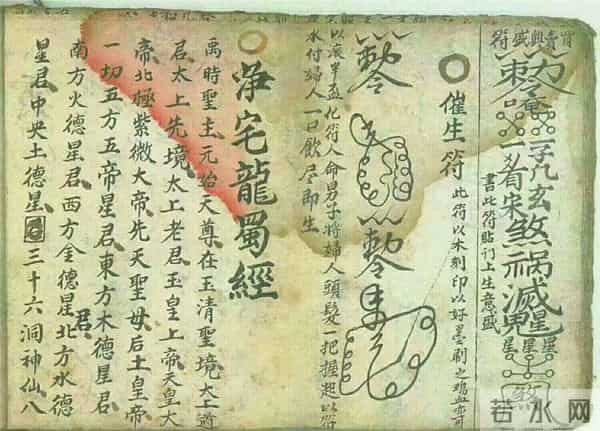 買賣興盛符
書此符貼門上生意盛
催生符
此符以木刻印以好墨刷之鷄血亦可
以滾半盃化符人命男子將婦人頭髮一把握起以符
水付婦人一口飲尽即生
淨宅龍蜀經
禹時聖主元始天尊在玉清聖境太上道
君太上先境太上老君玉皇上帝天皇大
帝北極紫微大帝先天聖母后土皇帝
一切五方五帝星君東方木德星君
南方火德星君西方金德星君北方水德
星君中央土德星君三十六洞神仙八
若水网